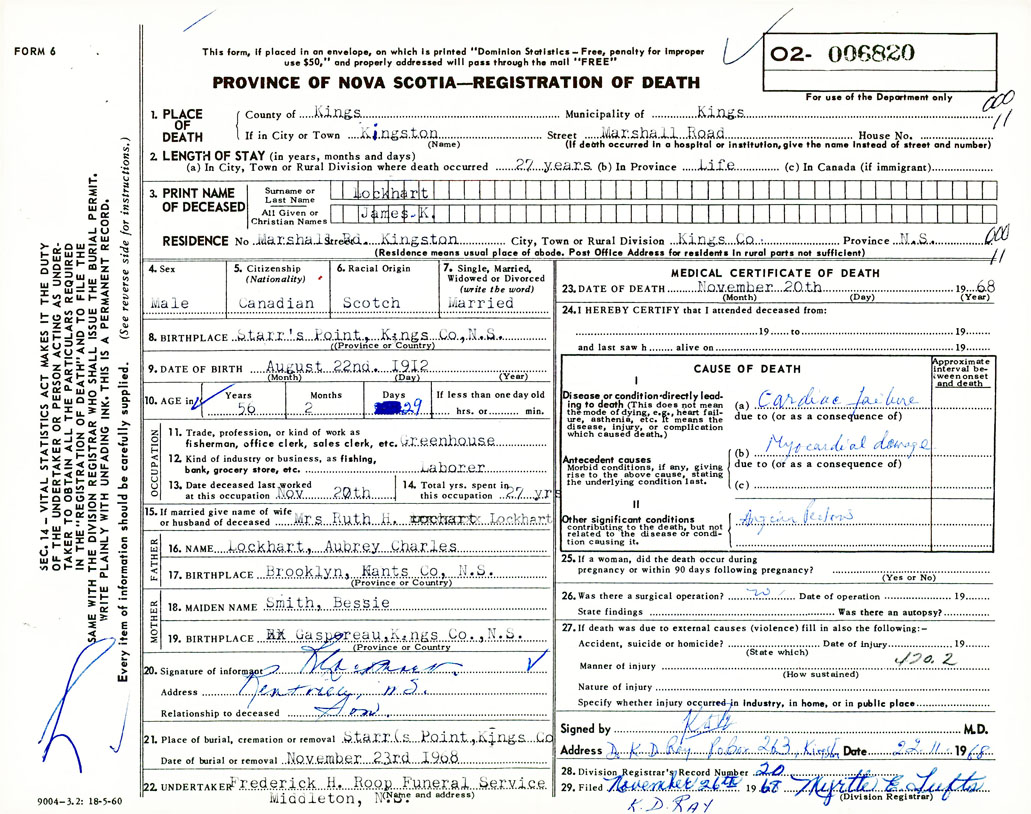 FORM 6
This form, if placed in an envelope, on which is printed "Dominion Statistics – Free, penalty for improper
use $50," and properly addressed will pass through the mail "FREE"
O2- 006820
PROVINCE OF NOVA SCOTIA—REGISTRATION OF DEATH
For use of the Department only
1. PLACE OF DEATH
County of Kings Municipality of Kings
000
11
If in City or Town Kingston Street Marshall Road House No.
(Name) (If death occurred in a hospital or institution, give the name instead of street and number)
2. LENGTH OF STAY (in years, months and days)
(a) In City, Town or Rural Division where death occurred 27 years (b) In Province Life (c) In Canada (if immigrant)
3. PRINT NAME OF DECEASED
Surname or Last Name Lockhart
All Given or Christian Names James K.
RESIDENCE No Marshall Street Rd. Kingston City, Town or Rural Division Kings Co. Province N.S.
000
11
(Residence means usual place of abode. Post Office Address for residents in rural parts not sufficient)
4. Sex
Male
5. Citizenship
(Nationality)
Canadian
6. Racial Origin
Scotch
7. Single, Married,
Widowed or Divorced
(write the word)
Married
8. BIRTHPLACE Starr's Point, Kings Co,N.S.
((Province or Country)
9. DATE OF BIRTH August 22nd. 1912
(Month) (Day) (Year)
10. AGE in
Years Months Days If less than one day old
56 2 29 hrs. or min.
OCCUPATION
11. Trade, profession, or kind of work as
fisherman, office clerk, sales clerk, etc. Greenhouse
12. Kind of industry or business, as fishing,
bank, grocery store, etc. Laborer
13. Date deceased last worked
at this occupation Nov 20th
14. Total yrs. spent in
this occupation 27 yrs
15. If married give name of wife
or husband of deceased Mrs Ruth H. Lockhart
FATHER
16. NAME Lockhart, Aubrey Charles
17. BIRTHPLACE Brooklyn, Hants Co, N.S.
(Province or Country)
MOTHER
18. MAIDEN NAME Smith, Bessie
19. BIRTHPLACE Gaspereau,Kings Co.,N.S.
(Province or Country)
20. Signature of informant
Address Kentville, N.S.
Relationship to deceased Son.
21. Place of burial, cremation or removal Starr(s Point,Kings Co
Date of burial or removal November 23rd 1968
22. UNDERTAKER Frederick H. Roop Funeral Service
Middleton, N.S.
(Name and address)
MEDICAL CERTIFICATE OF DEATH
23. DATE OF DEATH November 20th 1968
(Month) (Day) (Year)
24. I HEREBY CERTIFY that I attended deceased from:
19 to 19
and last saw h alive on 19
CAUSE OF DEATH
Approximate
interval be-
tween onset
and death
I
Disease or condition directly lead-
ing to death (This does not mean
the mode of dying, e.g., heart fail-
ure, asthenia, etc. It means the
disease, injury, or complication
which caused death.)
(a) Cardiac failure
due to (or as a consequence of)
Antecedent causes
Morbid conditions, if any, giving
rise to the above cause, stating
the underlying condition last.
(b) Myocardial damage
due to (or as a consequence of)
(c)
II
Other significant conditions
contributing to the death, but not
related to the disease or condi-
tion causing it.
Angina Pectoris
25. If a woman, did the death occur during
pregnancy or within 90 days following pregnancy?
(Yes or No)
26. Was there a surgical operation? no Date of operation 19
State findings Was there an autopsy?
27. If death was due to external causes (violence) fill in also the following:–
Accident, suicide or homicide? Date of injury 19
(State which)
420.2
Manner of injury
(How sustained)
Nature of injury
Specify whether injury occurred in industry, in home, or in public place
Signed by M.D.
Address Dr K. D. Ray P.o Box 263, Kingston Date 22.11. 1968
28. Division Registrar's Record Number 20
29. Filed November 26th 1968 Myrtle E. Tufts
(Division Registrar)
K.D. RAY
9004–3.2: 18-5-60
SEC. 14 – VITAL STATISTICS ACT MAKES IT THE DUTY
OF THE UNDERTAKER OR PERSON ACTING AS UNDER-
TAKER TO OBTAIN ALL THE PARTICULARS REQUIRED
IN THE "REGISTRATION OF DEATH" AND TO FILE THE
SAME WITH THE DIVISION REGISTRAR WHO SHALL ISSUE THE BURIAL PERMIT.
WRITE PLAINLY WITH UNFADING INK. THIS IS A PERMANENT RECORD.
Every item of information should be carefully supplied. (See reverse side for instructions.)